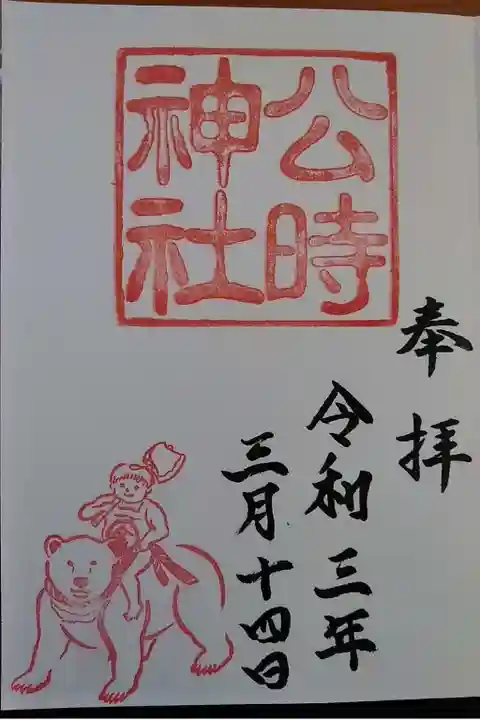 奉拝
令和三年
三月十四日
公時
神社